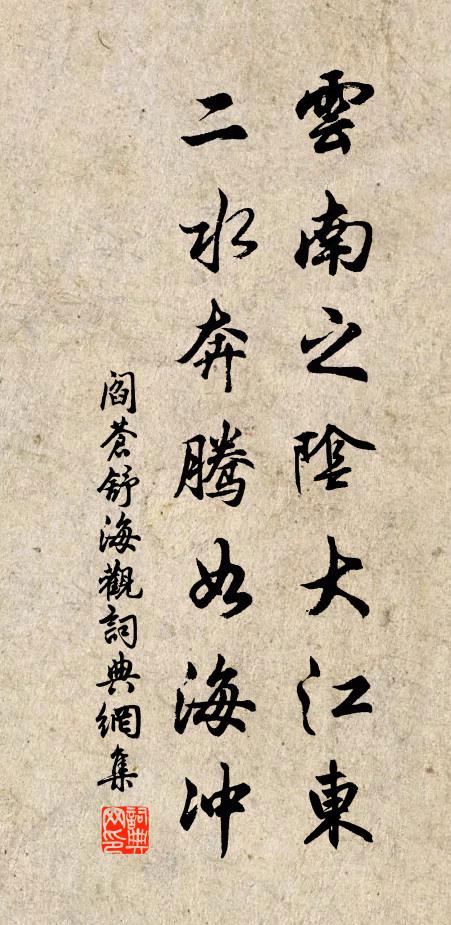 雲南之陰大江東
二水奔騰如海沖
閻蒼舒海觀詞典網集
詞典网印